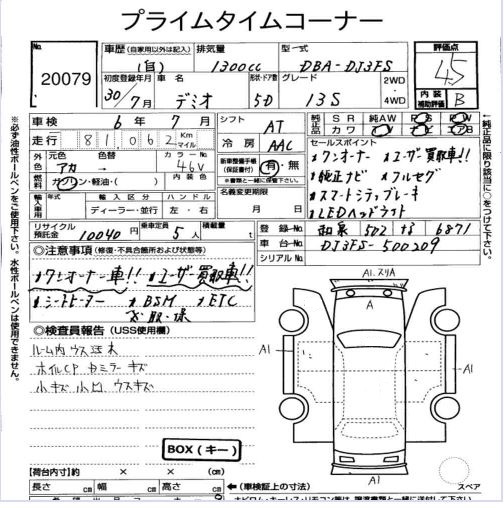 プライムタイムコーナー
No.
20079
車歴 (自家用以外は記入)
(自)
排気量
1300cc
型式
DBA-DJ3FS
評価点
4.5
初度登録年月
30/7月
車名
デミオ
形状・ドア数
5D
グレード
13S
2WD
4WD
内装補助評価
B
車検 6年7月
シフト AT
走行 81,062 Km マイル
冷房 AAC
純正品
SR 純AW PS PW
カワ エアB
外色 元色 アカ 色替
カラーNo. 46V
内装色
燃料 ガソリン・軽油・( )
新車整備手帳 (保証書付) 有・無
※書類と一緒に保管下さい。
名義変更期限
月 日
セールスポイント
ワンオーナー ユーザー買取車!!
純正ナビ フルセグ
スマートシティブレーキ
LEDヘッドライト
輸入車 年式
輸入区分 ディーラー・並行
ハンドル 左・右
リサイクル預託金 10040円
乗車定員 5人
積載量 t
登録No. 和泉 502 な 6871
車台No. DJ3FS-500209
シリアルNo.
◎注意事項 (修復・不具合箇所および状態等)
ワンオーナー車!! ユーザー買取車!!
シートヒーター BSM ETC
取・保
◎検査員報告 (USS使用欄)
ルーム内ウス汚れ
ホイルCP ドミラーキズ
小キズ 小凹 ウスキズ
BOX(キー)
A1.スリA
A
A1
A1
A1
スペア
【荷台内寸】約 × × (cm)
長さ cm 幅 cm 高さ cm ←(車検証上の寸法)
※必ず油性ボールペンをご使用下さい。水性ボールペンは使用できません。